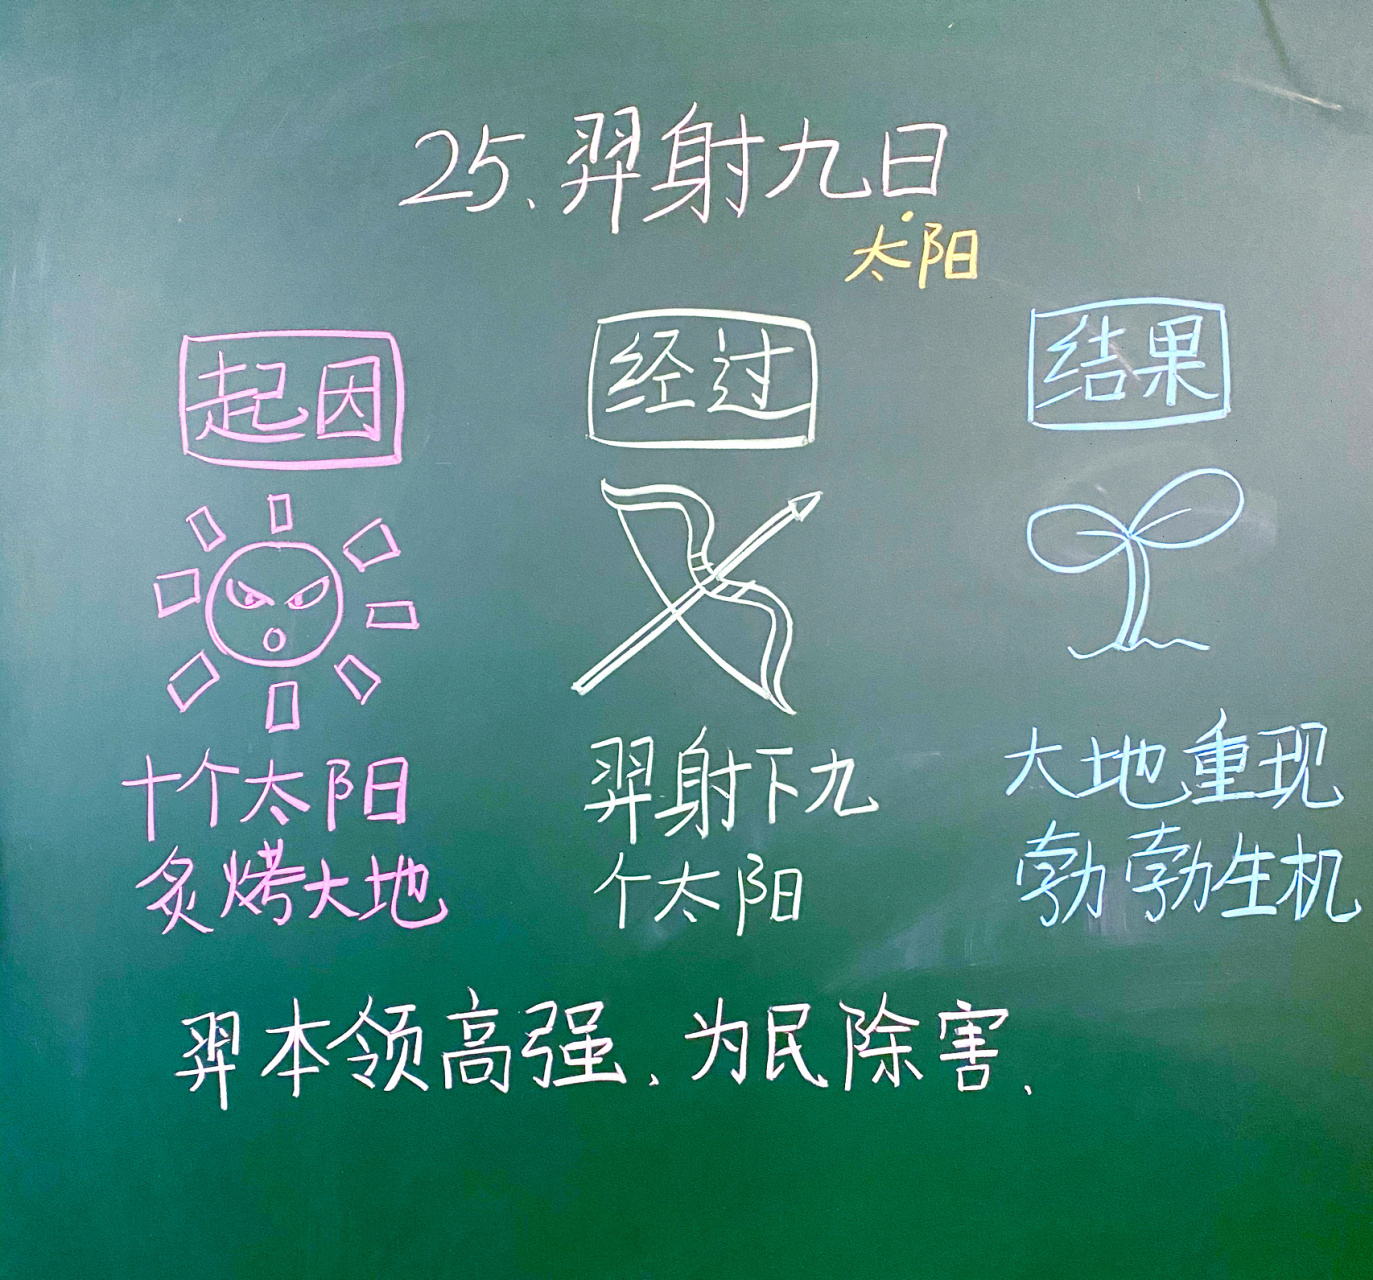 25、羿射九日
太阳
起因
经过
结果
十个太阳
炙烤大地
羿射下九
个太阳
大地重现
勃勃生机
羿本领高强、为民除害、